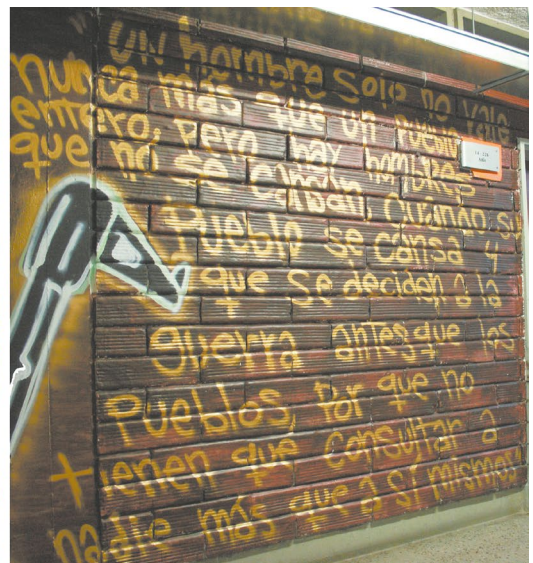 un hombre solo no vale
nunca más que un pueblo
entero, pero hay hombres
que no se cansan, cuando su
Pueblo se cansa y
que se deciden a la
guerra antes que los
Pueblos, por que no
tienen que consultar a
nadie más que a sí mismos